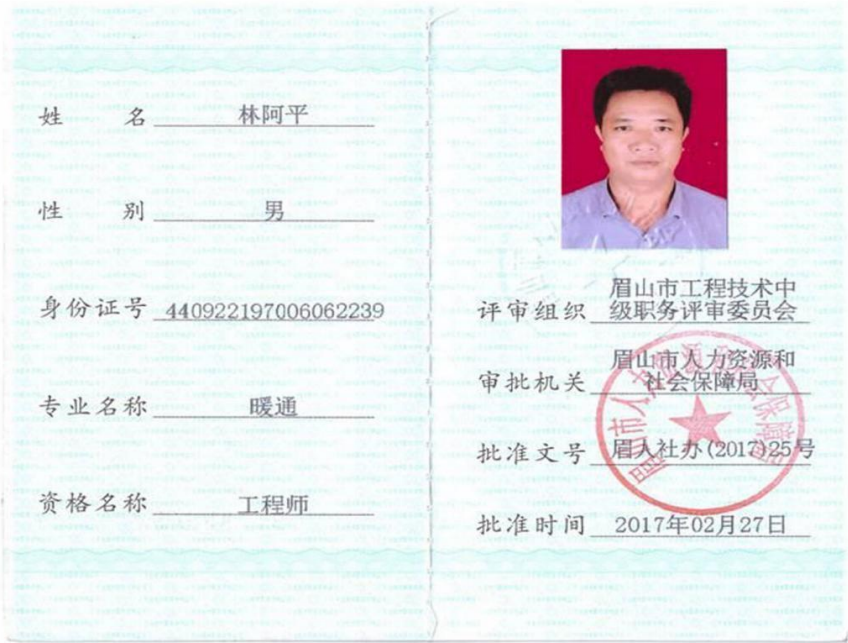 姓名 林阿平
性别 男
身份证号 440922197006062239
专业名称 暖通
资格名称 工程师
评审组织 眉山市工程技术中
级职务评审委员会
审批机关 眉山市人力资源和
社会保障局
批准文号 眉人社办(2017)25号
批准时间 2017年02月27日
眉山市人力资源和社会保障局